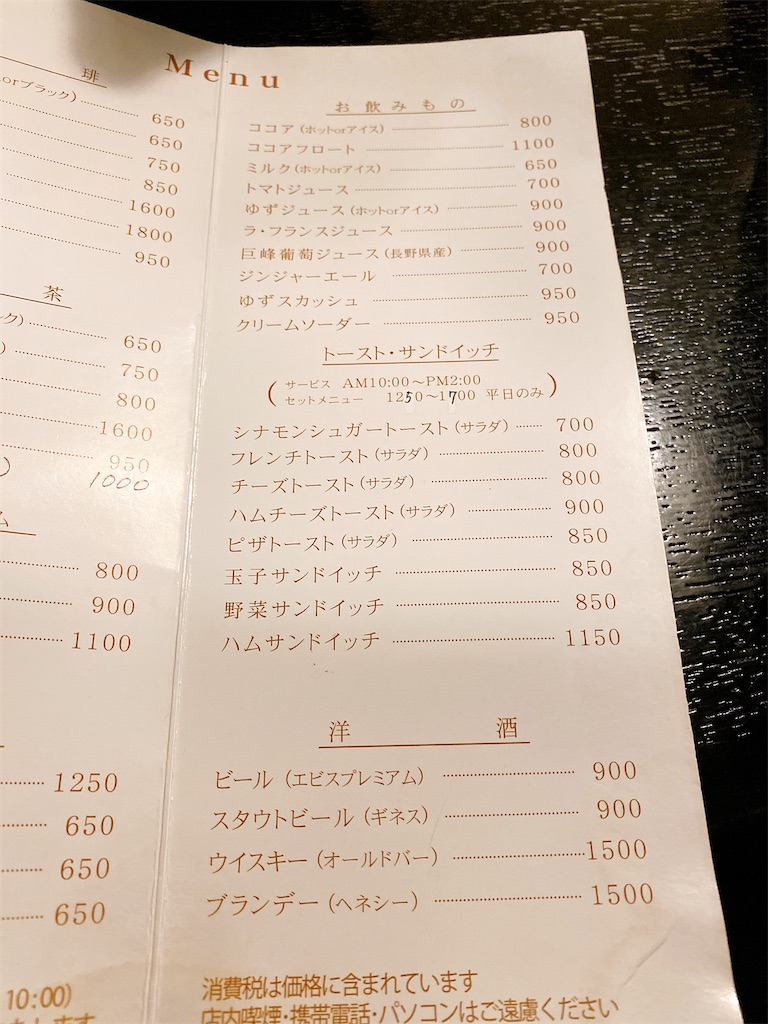 Menu
琲
orブラック) 650
650
750
850
1600
1800
950
茶
ク) 650
) 750
800
1600
950
) 1000
ム
800
900
1100
1250
650
650
650
10:00)
お飲みもの
ココア (ホットorアイス) 800
ココアフロート 1100
ミルク (ホットorアイス) 650
トマトジュース 700
ゆずジュース (ホットorアイス) 900
ラ・フランスジュース 900
巨峰葡萄ジュース (長野県産) 900
ジンジャーエール 700
ゆずスカッシュ 950
クリームソーダー 950
トースト・サンドイッチ
(サービス AM10:00〜PM2:00
セットメニュー 1250〜1700 平日のみ)
シナモンシュガートースト (サラダ) 700
フレンチトースト (サラダ) 800
チーズトースト (サラダ) 800
ハムチーズトースト (サラダ) 900
ピザトースト (サラダ) 850
玉子サンドイッチ 850
野菜サンドイッチ 850
ハムサンドイッチ 1150
洋酒
ビール (エビスプレミアム) 900
スタウトビール (ギネス) 900
ウイスキー (オールドバー) 1500
ブランデー (ヘネシー) 1500
消費税は価格に含まれています
店内喫煙・携帯電話・パソコンはご遠慮ください